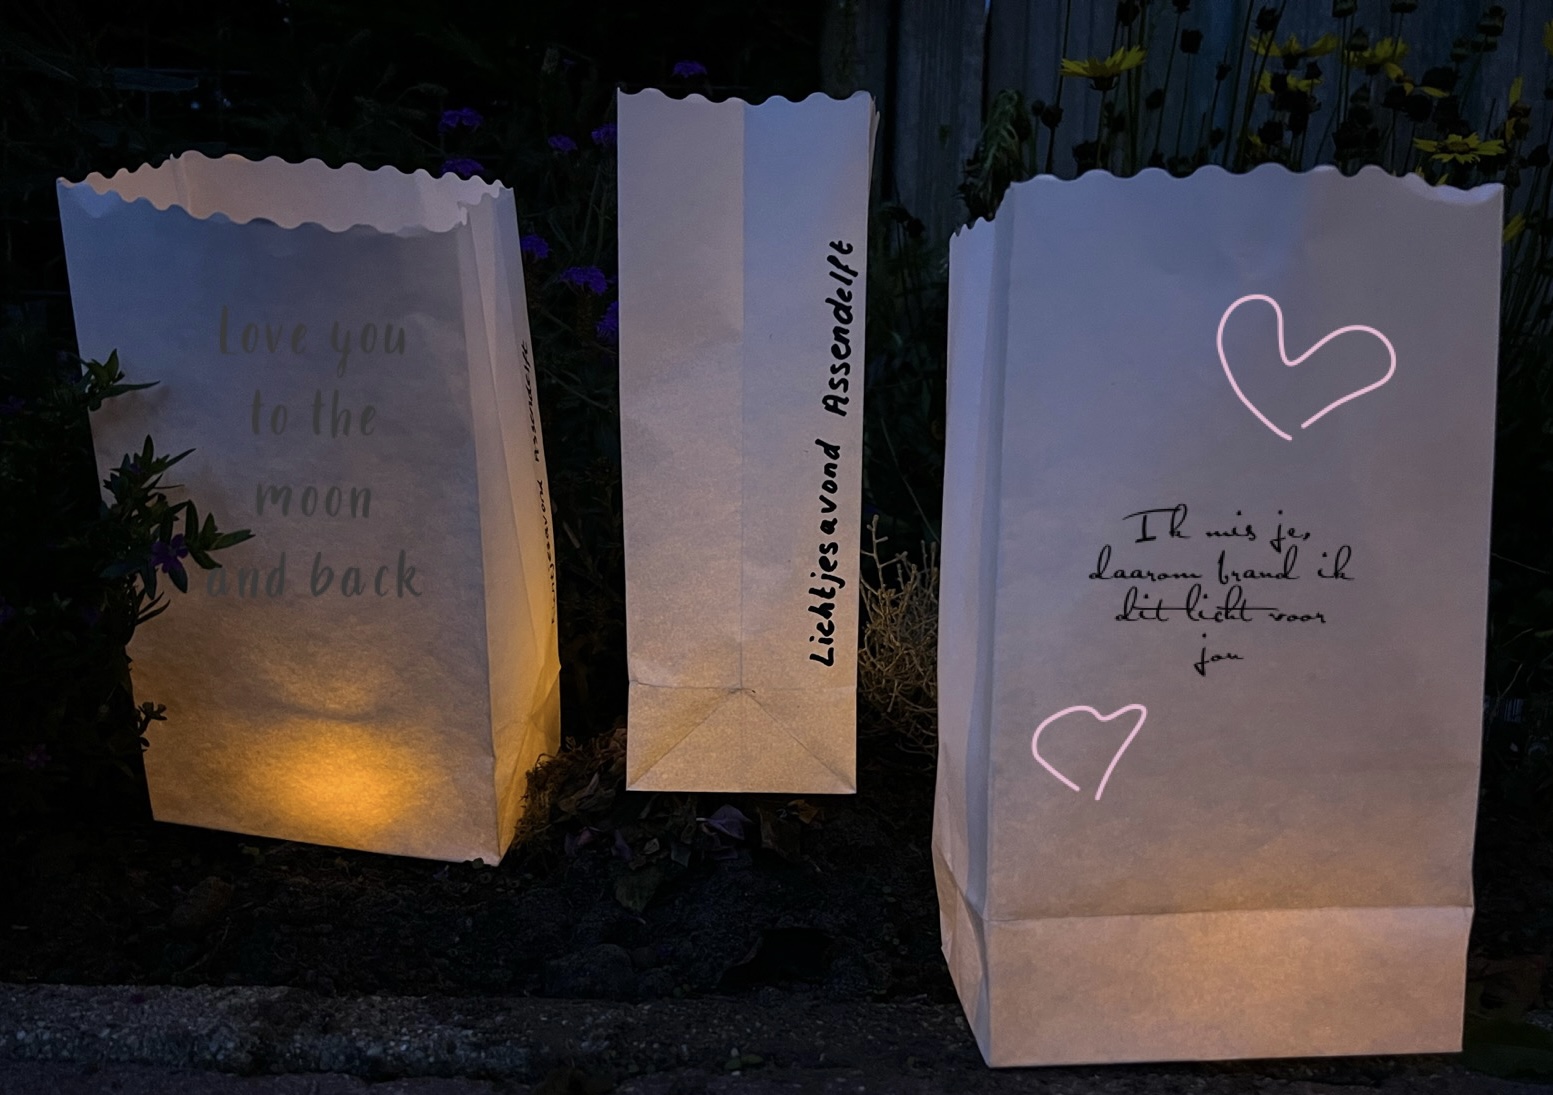 Love you
to the
moon
and back
Lichtjesavond Assendelft
Lichtjesavond Assendelft
Ik mis je,
daarom brand ik
dit licht voor
jou